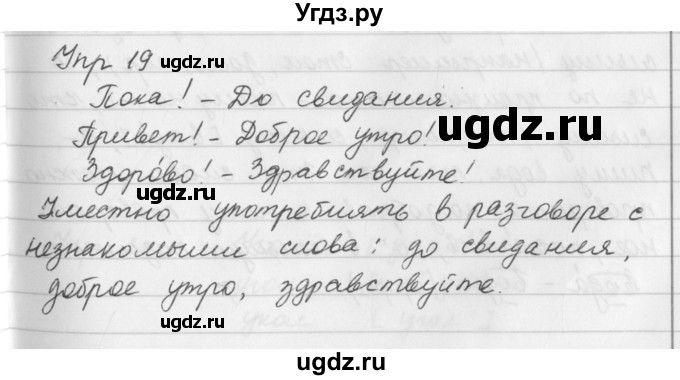 Угдз.ру
Упр 19 ugdz.ru ugdz.ru
Пока! - До свидания.
Привет! - Доброе утро! ugdz.ru
Здоро́во! - Здравствуйте!
ugdz.ru
Уместно употреблять в разговоре с
незнакомыми слова: до свидания,
доброе утро, здравствуйте.
ugdz.ru ugdz.ru
ugdz.ru